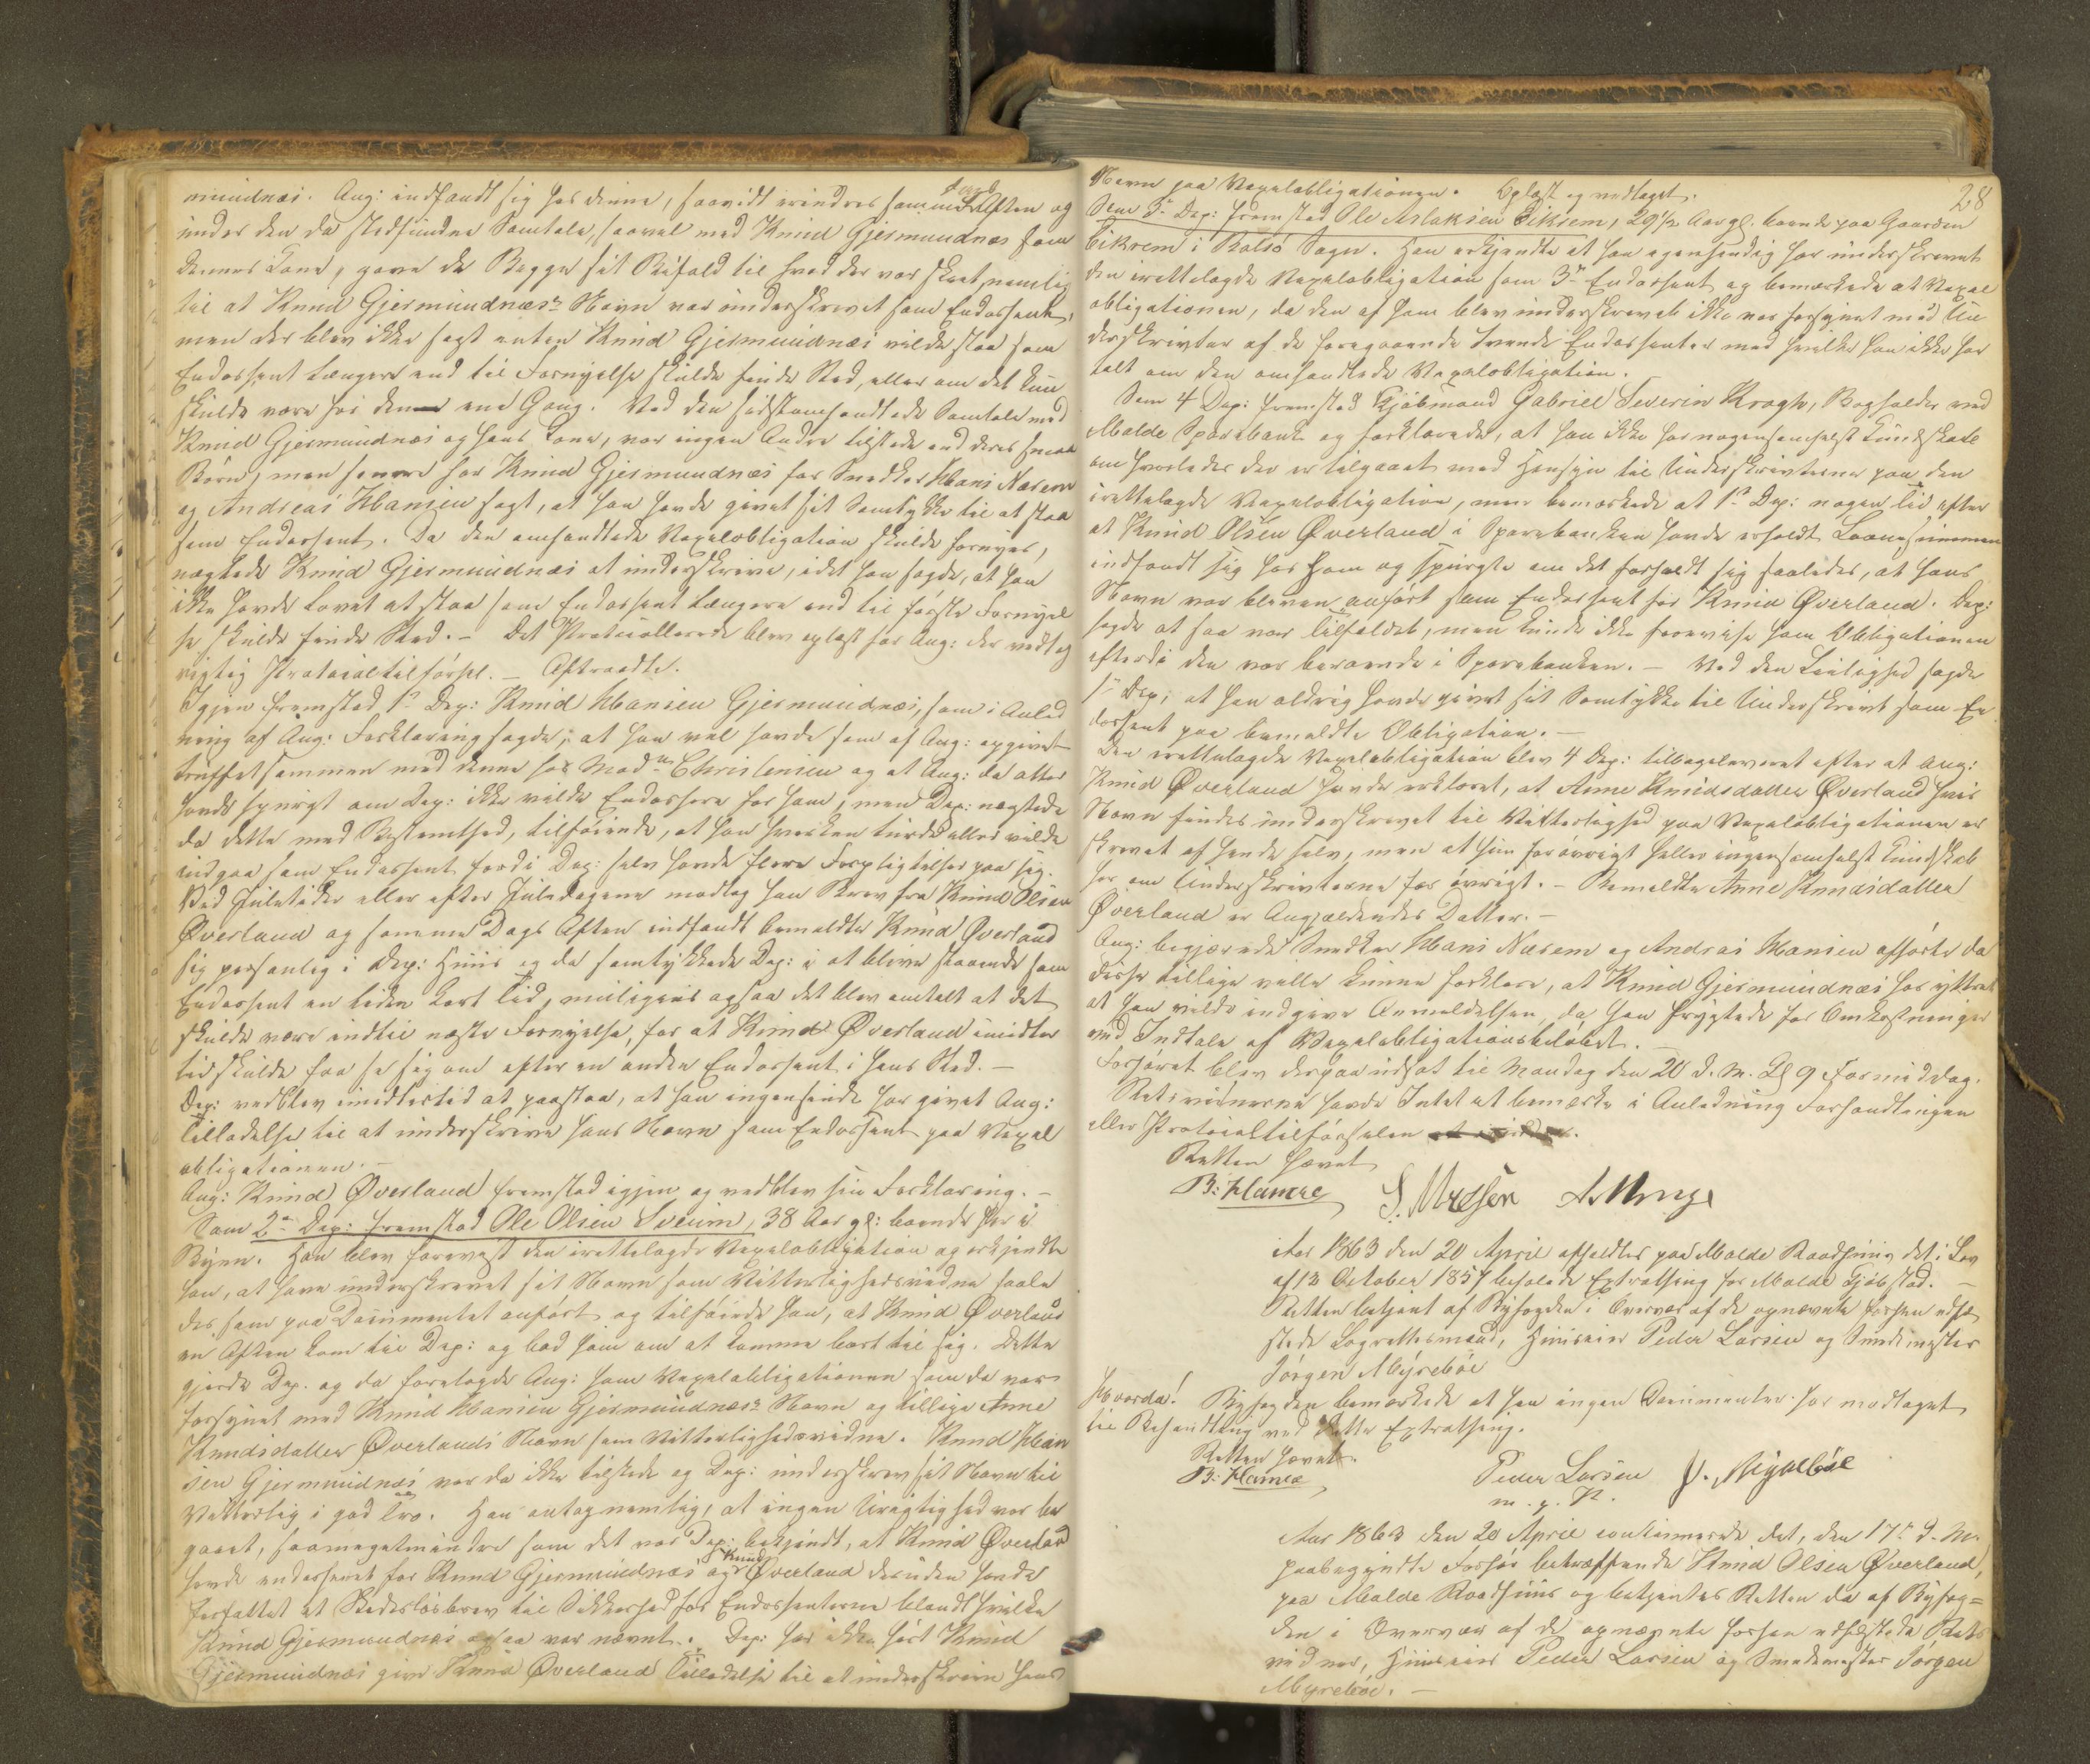 mundnæs. Ang: indfandt sig hos denne, saavidt erindres samme Aften og
under den da stedfundne Samtale, saavel med Knud Gjermundnæs som
dennes Kone, gave de Begge sit Bifald til hvad der var skeet, nemlig
til at Knud Gjermundnæs's Navn var underskrevet som Endossent,
men der blev ikke sagt enten Knud Gjermundnæs vilde staa som
Endossent længere end til Fornyelse skulde finde Sted, eller om det kun
skulde være for den ene Gang. Ved den sidstomhandlede Samtale med
Knud Gjermundnæs og hans Kone, var ingen Andre tilstede end deres smaa
Børn, men senere har Knud Gjermundnæs for Snedker Hans Næsem
og Andreas Hansen sagt, at han havde givet sit Samtykke til at staa
som Endossent. Da den omhandlede Vexelobligation skulde fornyes,
nægtede Knud Gjermundnæs at underskrive, idet han sagde, at han
ikke havde lovet at staa som Endossent længere end til første Fornyel
se skulde finde Sted. – Det Protocollerede blev oplæst for Ang: der vedtog
rigtig Protocoltilførsel. – Aftraadte.
Igjen fremstod 1ste Dep: Knud Hansen Gjermundnæs, som i Anled
ning af Ang: Forklaring sagde, at han vel havde som af Ang: opgivet
truffet sammen med denne hos Madme Christensen og at Ang: da atter
havde spurgt om Dep: ikke vilde Endossere for ham, men Dep: nægtede
da dette med Bestemthed, tilføiende, at han hverken turde eller vilde
indgaa som Endossent fordi Dep: selv havde flere Forpligtelser paa sig.
Ved Juletider eller efter Juledagene modtog han Brev fra Knud Olsen
Øverland og samme Dags Aften indfandt bemeldte Knud Øverland
sig personlig i Dep: Huus og da samtykkede Dep: i at blive staaende som
Endossent en liden kort Tid, muligens ogsaa det blev omtalt at det
skulde være indtil næste Fornyelse, for at Knud Øverland imidler
tid skulde faa se sig om efter en anden Endossent i hans Sted. –
Dep: vedblev imidlertid at paastaa, at han ingensinde har givet Ang:
Tilladelse til at underskrive hans Navn som Endossent paa Vexel
obligationen. –
Ang: Knud Øverland fremstod igjen og vedblev sin Forklaring. –
Som 2den Dep: fremstod Ole Olsen Sveum, 38 Aar gl: boende her i
Byen. Han blev forevist den irettelagde Vexelobligation og erkjendte
han, at have underskrevet sit Navn som Vitterlighedsvidne saale
des som paa Documentet anført og tilføiede han, at Knud Øverland
en Aften kom til Dep: og bad ham om at komme bort til sig. Dette
gjorde Dep. og da forelagde Ang: ham Vexelobligationen som da var
forsynet med Knud Hansen Gjermundnæs's Navn og tillige Anne
Knudsdatter Øverlands Navn som Vitterlighedsvidne. Knud Han
sen Gjermundnæs var da ikke tilstede og Dep: underskrev sit Navn til
Vitterlig i god Tro. Han antog nemlig, at ingen Urigtighed var be
gaaet, saameget mindre som det var Dep: bekjendt, at Knud Øverland
havde endosseret for Knud Gjermundnæs og Knud Øverland desuden havde
forfattet et Skadesløsbrev til Sikkerhed for Endossenterne blandt hvilke
Knud Gjermundnæs ogsaa var nævnt. Dep: har ikke hørt Knud
Gjermundnæs give Knud Øverland Tilladelse til at underskrive hans
28
Navn paa Vexelobligationen. Oplæst og vedtaget.
Som 3die Dep: fremstod Ole Aslaksen Eikrem, 29½ Aar gl. boende paa Gaarden
Eikrem i Bolsø Sogn. Han erkjendte at han egenhændig har underskrevet
den irettelagde Vexelobligation som 3die Endossent og bemærkede at Vexel
obligationen, da den af ham blev underskrevet ikke var forsynet med Un
derskrivter af de foregaaende tvende Endossenter med hvilke han ikke har
talt om den omhandlede Vexelobligation.
Som 4 Dep: fremstod Kjøbmand Gabriel Severin Krogh, Bogholder ved
Molde Sparebank og forklarede, at han ikke har nogensomhelst Kundskab
om hvorledes der er tilgaaet med Hensyn til Underskrivterne paa den
irettelagde Vexelobligation, men bemærkede at 1ste Dep: nogen Tid efter
at Knud Olsen Øverland i Sparebanken havde erholdt Laanesummen
indfandt sig hos ham og spurgte om det forholdt sig saaledes, at hans
Navn var bleven anført som Endossent for Knud Øverland. Dep:
sagde at saa var Tilfældet, men kunde ikke forevise ham Obligationen
efterdi den var beroende i Sparebanken. – Ved den Leilighed sagde
1ste Dep: at han aldrig havde givet sit Samtykke til Underskrivt som En
dossent paa bemeldte Obligation. –
Den irettelagde Vexelobligation blev 4 Dep: tilbageleveret efter at Ang:
Knud Øverland havde erklæret, at Anne Knudsdatter Øverland hvis
Navn findes underskrevet til Vitterlighed paa Vexelobligationen er
skrevet af hende selv, men at hun forøvrigt heller ingensomhelst Kundskab
har om Underskrivterne for øvrigt. – Bemeldte Anne Knudsdatter
Øverland er Angjældendes Datter. –
Ang: begjærede Snedker Hans Næsem og Andreas Hansen afhørte da
disse tillige ville kunne forklare, at Knud Gjermundnæs har yttret
at han vilde indgive Anmeldelsen, da han frygtede for Omkostninger
ved Indtale af Vexelobligationsbeløbet. –
Forhøret blev derpaa udsat til Mandag den 20 d. M. Kl 9 Formiddag.
Retsvidnerne havde Intet at bemærke i Anledning Forhandlingen
eller Protocoltilførselen
Retten hævet
B: Hamre
Aar 1863 den 20 April afholdtes paa Molde Raadhuus det i Lov
af 12 October 1857 befalede Extrathing for Molde Kjøbstad. –
Retten betjent af Byfogden i Overvær af de opnævnte forhen edfæ
stede Lagrettesmænd, Huuseier Peder Larsen og Smedmester
Jørgen Myrebøe
Hvorda!
Byfogden bemærkede at han ingen Documenter har modtaget
til Behandling ved dette Extrathing.
Retten hævet.
B: Hamre
Peder Larsen
m. p. P.
J. Myrebøe
Aar 1863 den 20 April continuerede det, den 17de d. M.
paabegyndte Forhør betræffende Knud Olsen Øverland,
paa Molde Raadhuus og betjentes Retten da af Byfog=
den i Overvær af de opnævnte forhen edfæstede Rets
vidner, Huuseier Peder Larsen og Smedemester Jørgen
Myrebøe. –